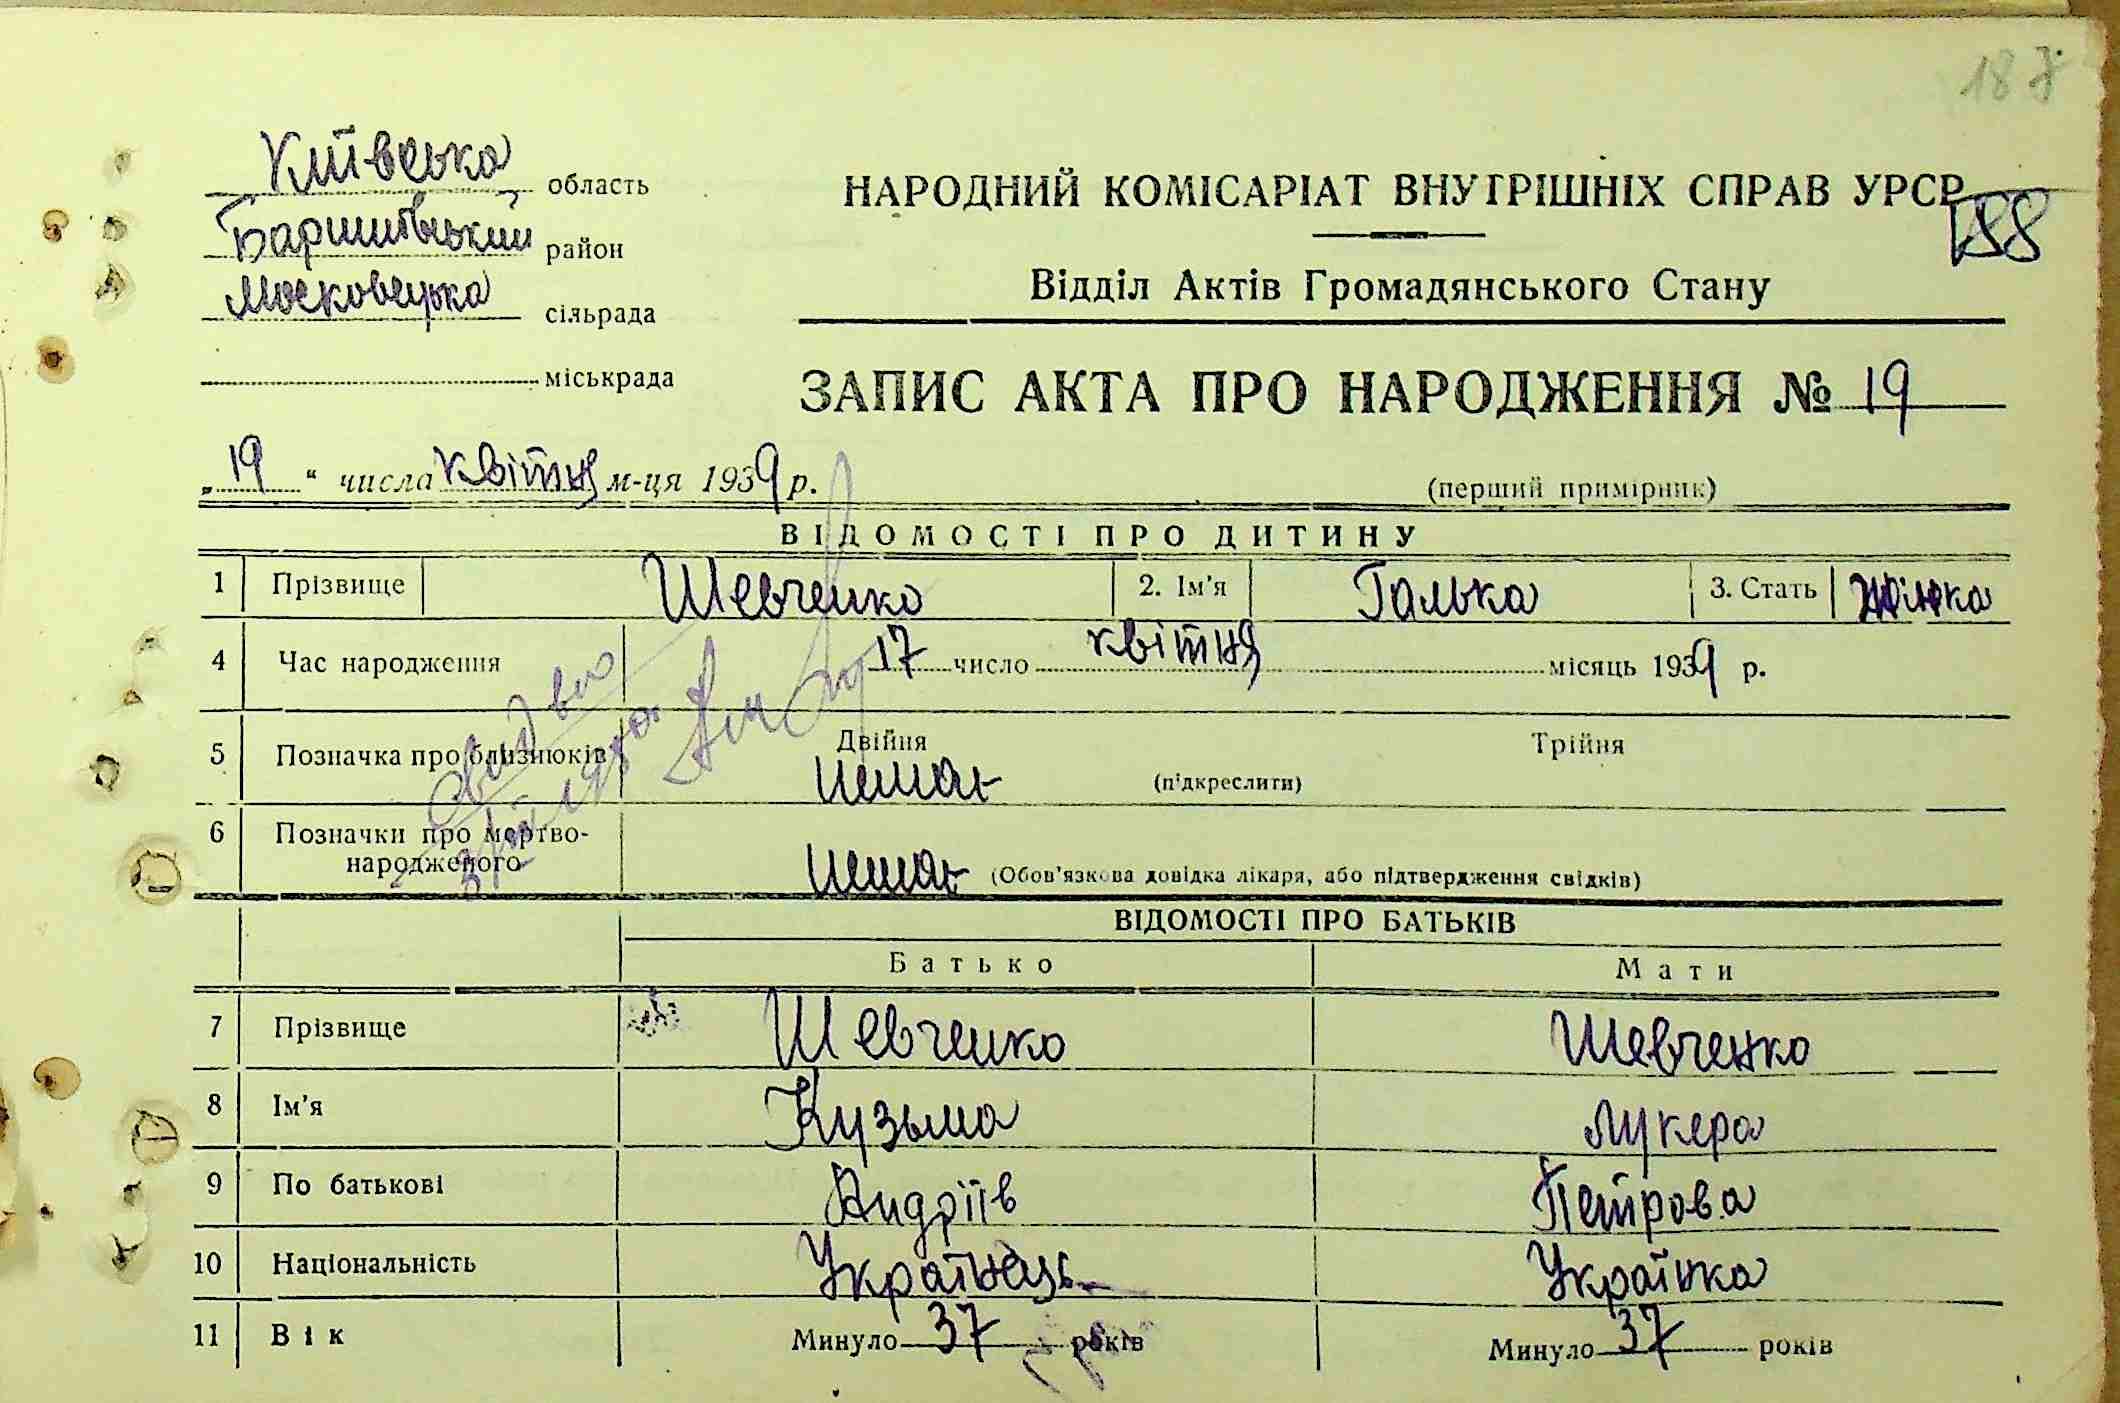 187
Київська область
Баришівський район
Московцька сільрада
міськрада
НАРОДНИЙ КОМІСАРІАТ ВНУТРІШНІХ СПРАВ УРСР
188
Відділ Актів Громадянського Стану
ЗАПИС АКТА ПРО НАРОДЖЕННЯ № 19
„19“ числа квітня м-ця 1939 р.
(перший примірник)
ВІДОМОСТІ ПРО ДИТИНУ
1 Прізвище Шевченко 2. Ім'я Галька 3. Стать жінка
4 Час народження 17 число квітня місяць 1939 р.
5 Позначка про близнюків Двійня Трійня
немає (підкреслити)
6 Позначки про мертво-
народженого немає (Обов'язкова довідка лікаря, або підтвердження свідків)
ВІДОМОСТІ ПРО БАТЬКІВ
Батько Мати
7 Прізвище Шевченко Шевченко
8 Ім'я Кузьма Лукера
9 По батькові Андріїв Петрова
10 Національність Українець Українка
11 Вік Минуло 37 років Минуло 37 років